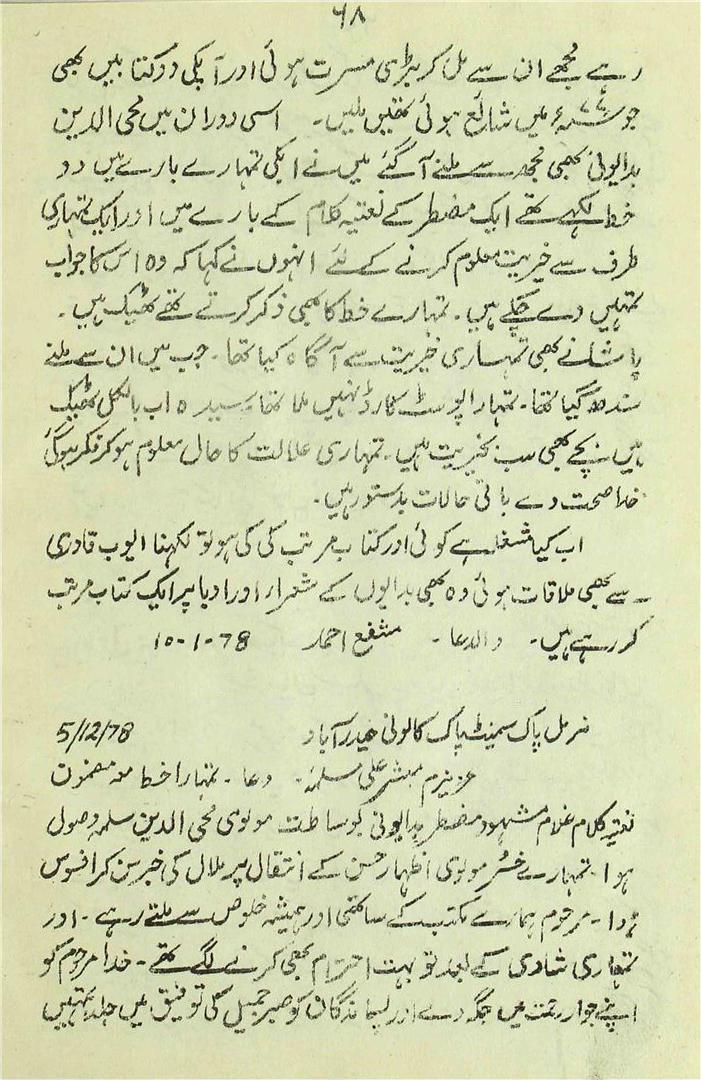 ۶۸
رہے مجھے ان سے مل کر بڑی مسرت ہوئی اور آپکی دو کتابیں بھی
جو ۷۷ء میں شائع ہوئی تھیں ملیں۔ اسی دوران میں محی الدین
بدایونی بھی مجھ سے ملنے آگئے میں نے انکی تمہارے بارے میں دو
خط لکھے تھے ایک مضطر کے نعتیہ کلام کے بارے میں اور ایک تمہاری
طرف سے خیریت معلوم کرنے کے لئے انہوں نے کہا کہ وہ اس کا جواب
تمہیں دے چکے ہیں۔ تمہارے خط کا بھی ذکر کرتے تھے ٹھیک ہیں۔
پاشا نے بھی تمہاری خیریت سے آگاہ کیا تھا۔ جب میں ان سے ملنے
سندھ گیا تھا۔ تمہارا پوسٹ کارڈ نہیں ملا تھا۔ سیدہ اب بالکل ٹھیک
ہیں بچے بھی سب بخیریت ہیں۔ تمہاری علالت کا حال معلوم ہو کر فکر ہوگئی
خدا صحت دے باقی حالات بدستور ہیں۔
اب کیا شغل ہے کوئی اور کتاب مرتب کی کی ہو تو لکھنا ایوب قادری
سے بھی ملاقات ہوئی وہ بھی بدایوں کے شعراء اور ادبا پر ایک کتاب مرتب
کر رہے ہیں۔ والدعا۔ مشفع احمد 10-1-78
نرمل پاک سمینٹ پاک کالونی حیدرآباد 5/12/78
عزیزم مبشر علی سلمہٗ۔ دعا۔ تمہارا خط معہ مضمون
نعتیہ کلام غلام مشہود مضطر بدایونی بوساطت مولوی محی الدین سلمہ وصول
ہوا۔ تمہارے خسر مولوی اظہار حسن کے انتقال پر ملال کی خبر سن کر افسوس
ہوا۔ مرحوم ہمارے مکتب کے ساتھی اور ہمیشہ خلوص سے ملتے رہے۔ اور
تمہاری شادی کے بعد تو بہت احترام بھی کرنے لگے تھے۔ خدا مرحوم کو
اپنے جوار رحمت میں جگہ دے اور پسماندگان کو صبر جمیل کی توفیق میں جلد تمہیں